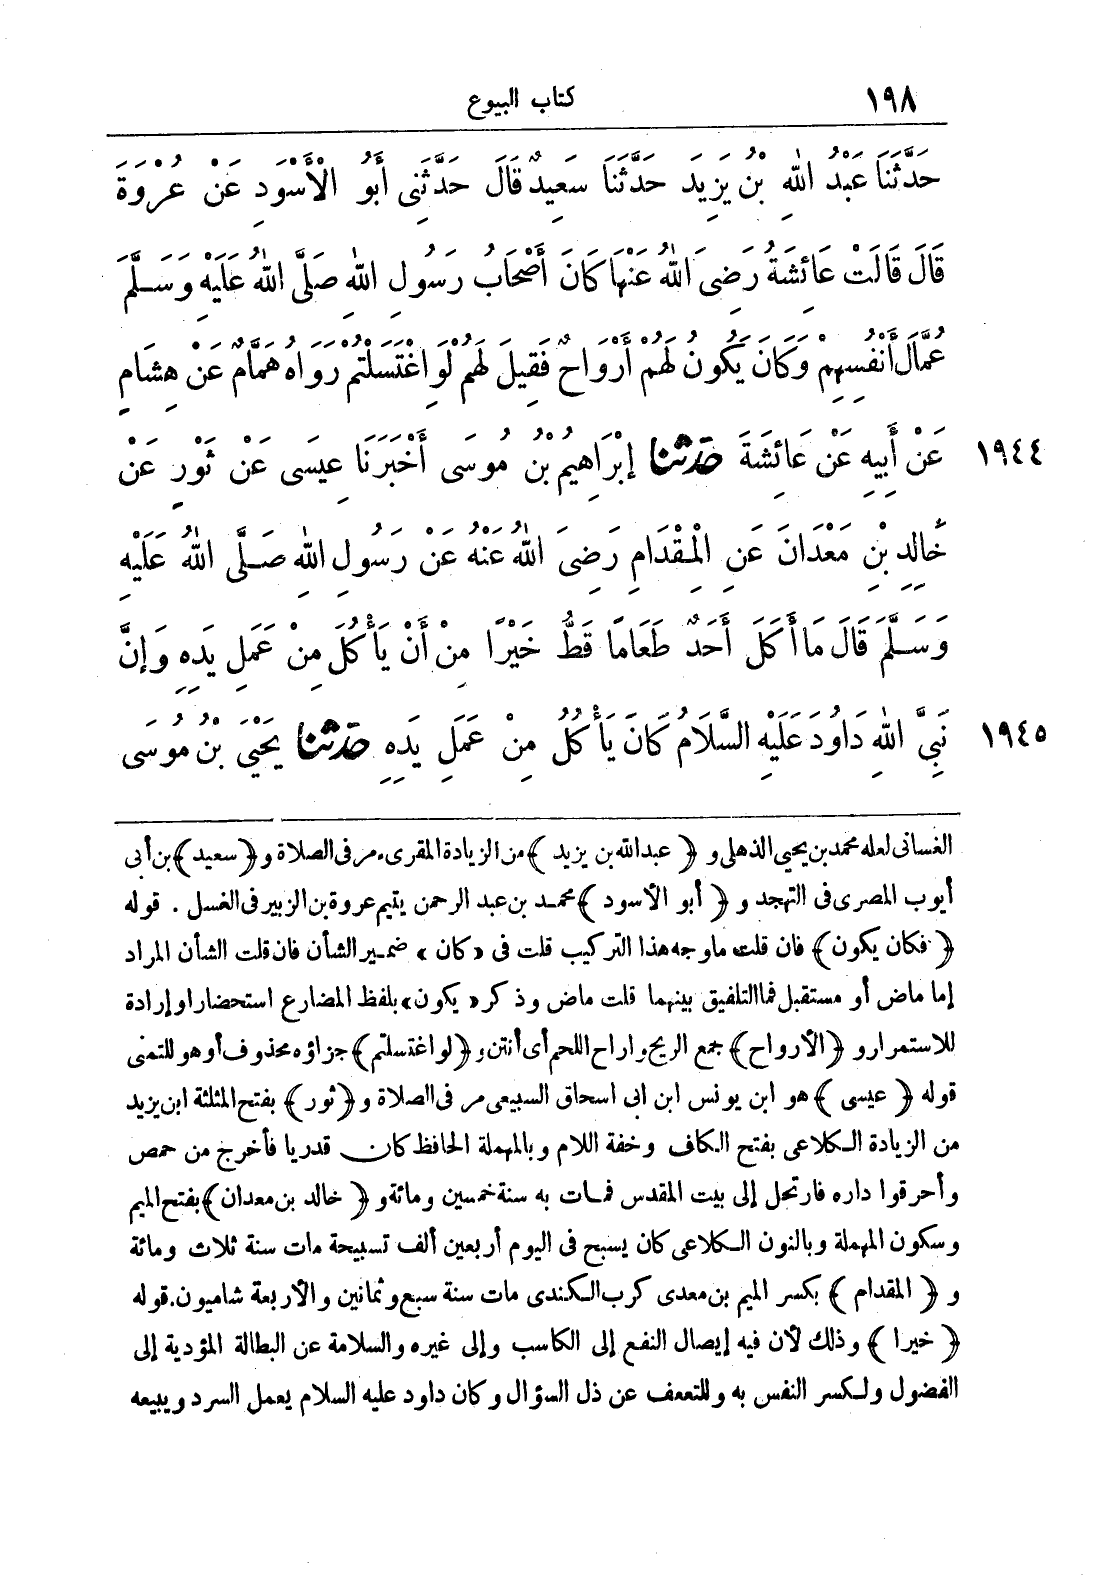 ١٩٨ كتاب البيوع
حَدَّثَنَا عَبْدُ اللهِ بْنُ يَزِيدَ حَدَّثَنَا سَعِيدٌ قَالَ حَدَّثَنِى أَبُو الْأَسْوَدِ عَنْ عُرْوَةَ
قَالَ قَالَتْ عَائِشَةُ رَضِىَ اللهُ عَنْهَا كَانَ أَصْحَابُ رَسُولِ اللهِ صَلَّى اللهُ عَلَيْهِ وَسَلَّمَ
عُمَّالَ أَنْفُسِهِمْ وَكَانَ يَكُونُ لَهُمْ أَرْوَاحٌ فَقِيلَ لَهُمْ لَوِ اغْتَسَلْتُمْ رَوَاهُ هَمَّامٌ عَنْ هِشَامٍ
١٩٤٤ عَنْ أَبِيهِ عَنْ عَائِشَةَ حَدَّثَنَا إِبْرَاهِيمُ بْنُ مُوسَى أَخْبَرَنَا عِيسَى عَنْ ثَوْرٍ عَنْ
خَالِدِ بْنِ مَعْدَانَ عَنِ الْمِقْدَامِ رَضِىَ اللهُ عَنْهُ عَنْ رَسُولِ اللهِ صَلَّى اللهُ عَلَيْهِ
وَسَلَّمَ قَالَ مَا أَكَلَ أَحَدٌ طَعَامًا قَطُّ خَيْرًا مِنْ أَنْ يَأْكُلَ مِنْ عَمَلِ يَدِهِ وَإِنَّ
١٩٤٥ نَبِىَّ اللهِ دَاوُدَ عَلَيْهِ السَّلَامُ كَانَ يَأْكُلُ مِنْ عَمَلِ يَدِهِ حَدَّثَنَا يَحْيَى بْنُ مُوسَى
الغسانى لعله محمد بن يحيى الذهلى و ﴿ عبدالله بن يزيد ﴾ من الزيادة المقرىء مر فى الصلاة و ﴿ سعيد ﴾ بن أبى
أيوب المصرى فى التهجد و ﴿ أبو الأسود ﴾ محمد بن عبد الرحمن يتيم عروة بن الزبير فى الغسل . قوله
﴿ فكان يكون ﴾ فان قلت ما وجه هذا التركيب قلت فى «كان» ضمير الشأن فان قلت الشأن المراد
إما ماض أو مستقبل فما التلفيق بينهما قلت ماض وذكر «يكون» بلفظ المضارع استحضارا وإرادة
للاستمرار و ﴿ الأرواح ﴾ جمع الريح و اراح اللحم أى أنتن و ﴿ لو اغتسلتم ﴾ جزاؤه محذوف أو هو للتمنى
قوله ﴿ عيسى ﴾ هو ابن يونس ابن ابى اسحاق السبيعى مر فى الصلاة و ﴿ ثور ﴾ بفتح المثلثة ابن يزيد
من الزيادة الكلاعى بفتح الكاف وخفة اللام وبالمهملة الحافظ كان قدريا فأخرج من حمص
وأحرقوا داره فارتحل إلى بيت المقدس فمات به سنة خمسين ومائة و ﴿ خالد بن معدان ﴾ بفتح الميم
وسكون المهملة وبالنون الكلاعى كان يسبح فى اليوم أربعين ألف تسبيحة مات سنة ثلاث ومائة
و ﴿ المقدام ﴾ بكسر الميم بن معدى كرب الكندى مات سنة سبع وثمانين والأربعة شاميون. قوله
﴿ خيرا ﴾ وذلك لأن فيه إيصال النفع إلى الكاسب وإلى غيره والسلامة عن البطالة المؤدية إلى
الفضول ولكسر النفس به وللتعفف عن ذل السؤال وكان داود عليه السلام يعمل السرد ويبيعه